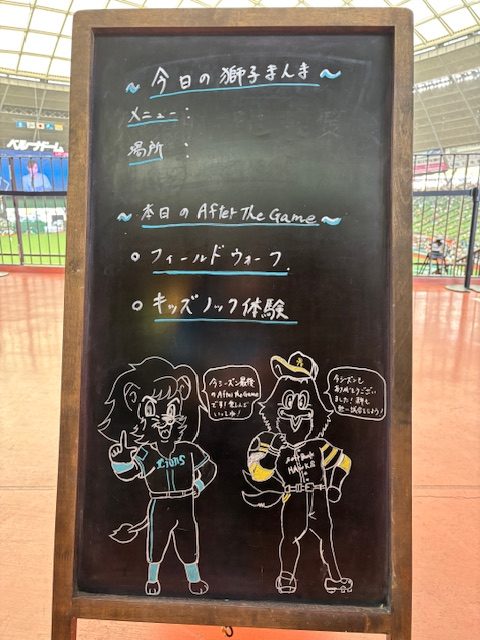 ～今日の獅子まんま～
メニュー：
場所：
ベルーナドーム
～本日のAfter The Game～
○フィールドウォーク
○キッズノック体験
今シーズン最後
のAfter The Game
です！楽しんで
いってね！
今シーズンも
ありがとうござい
ました！
Lions
SoftBank
HAWKS